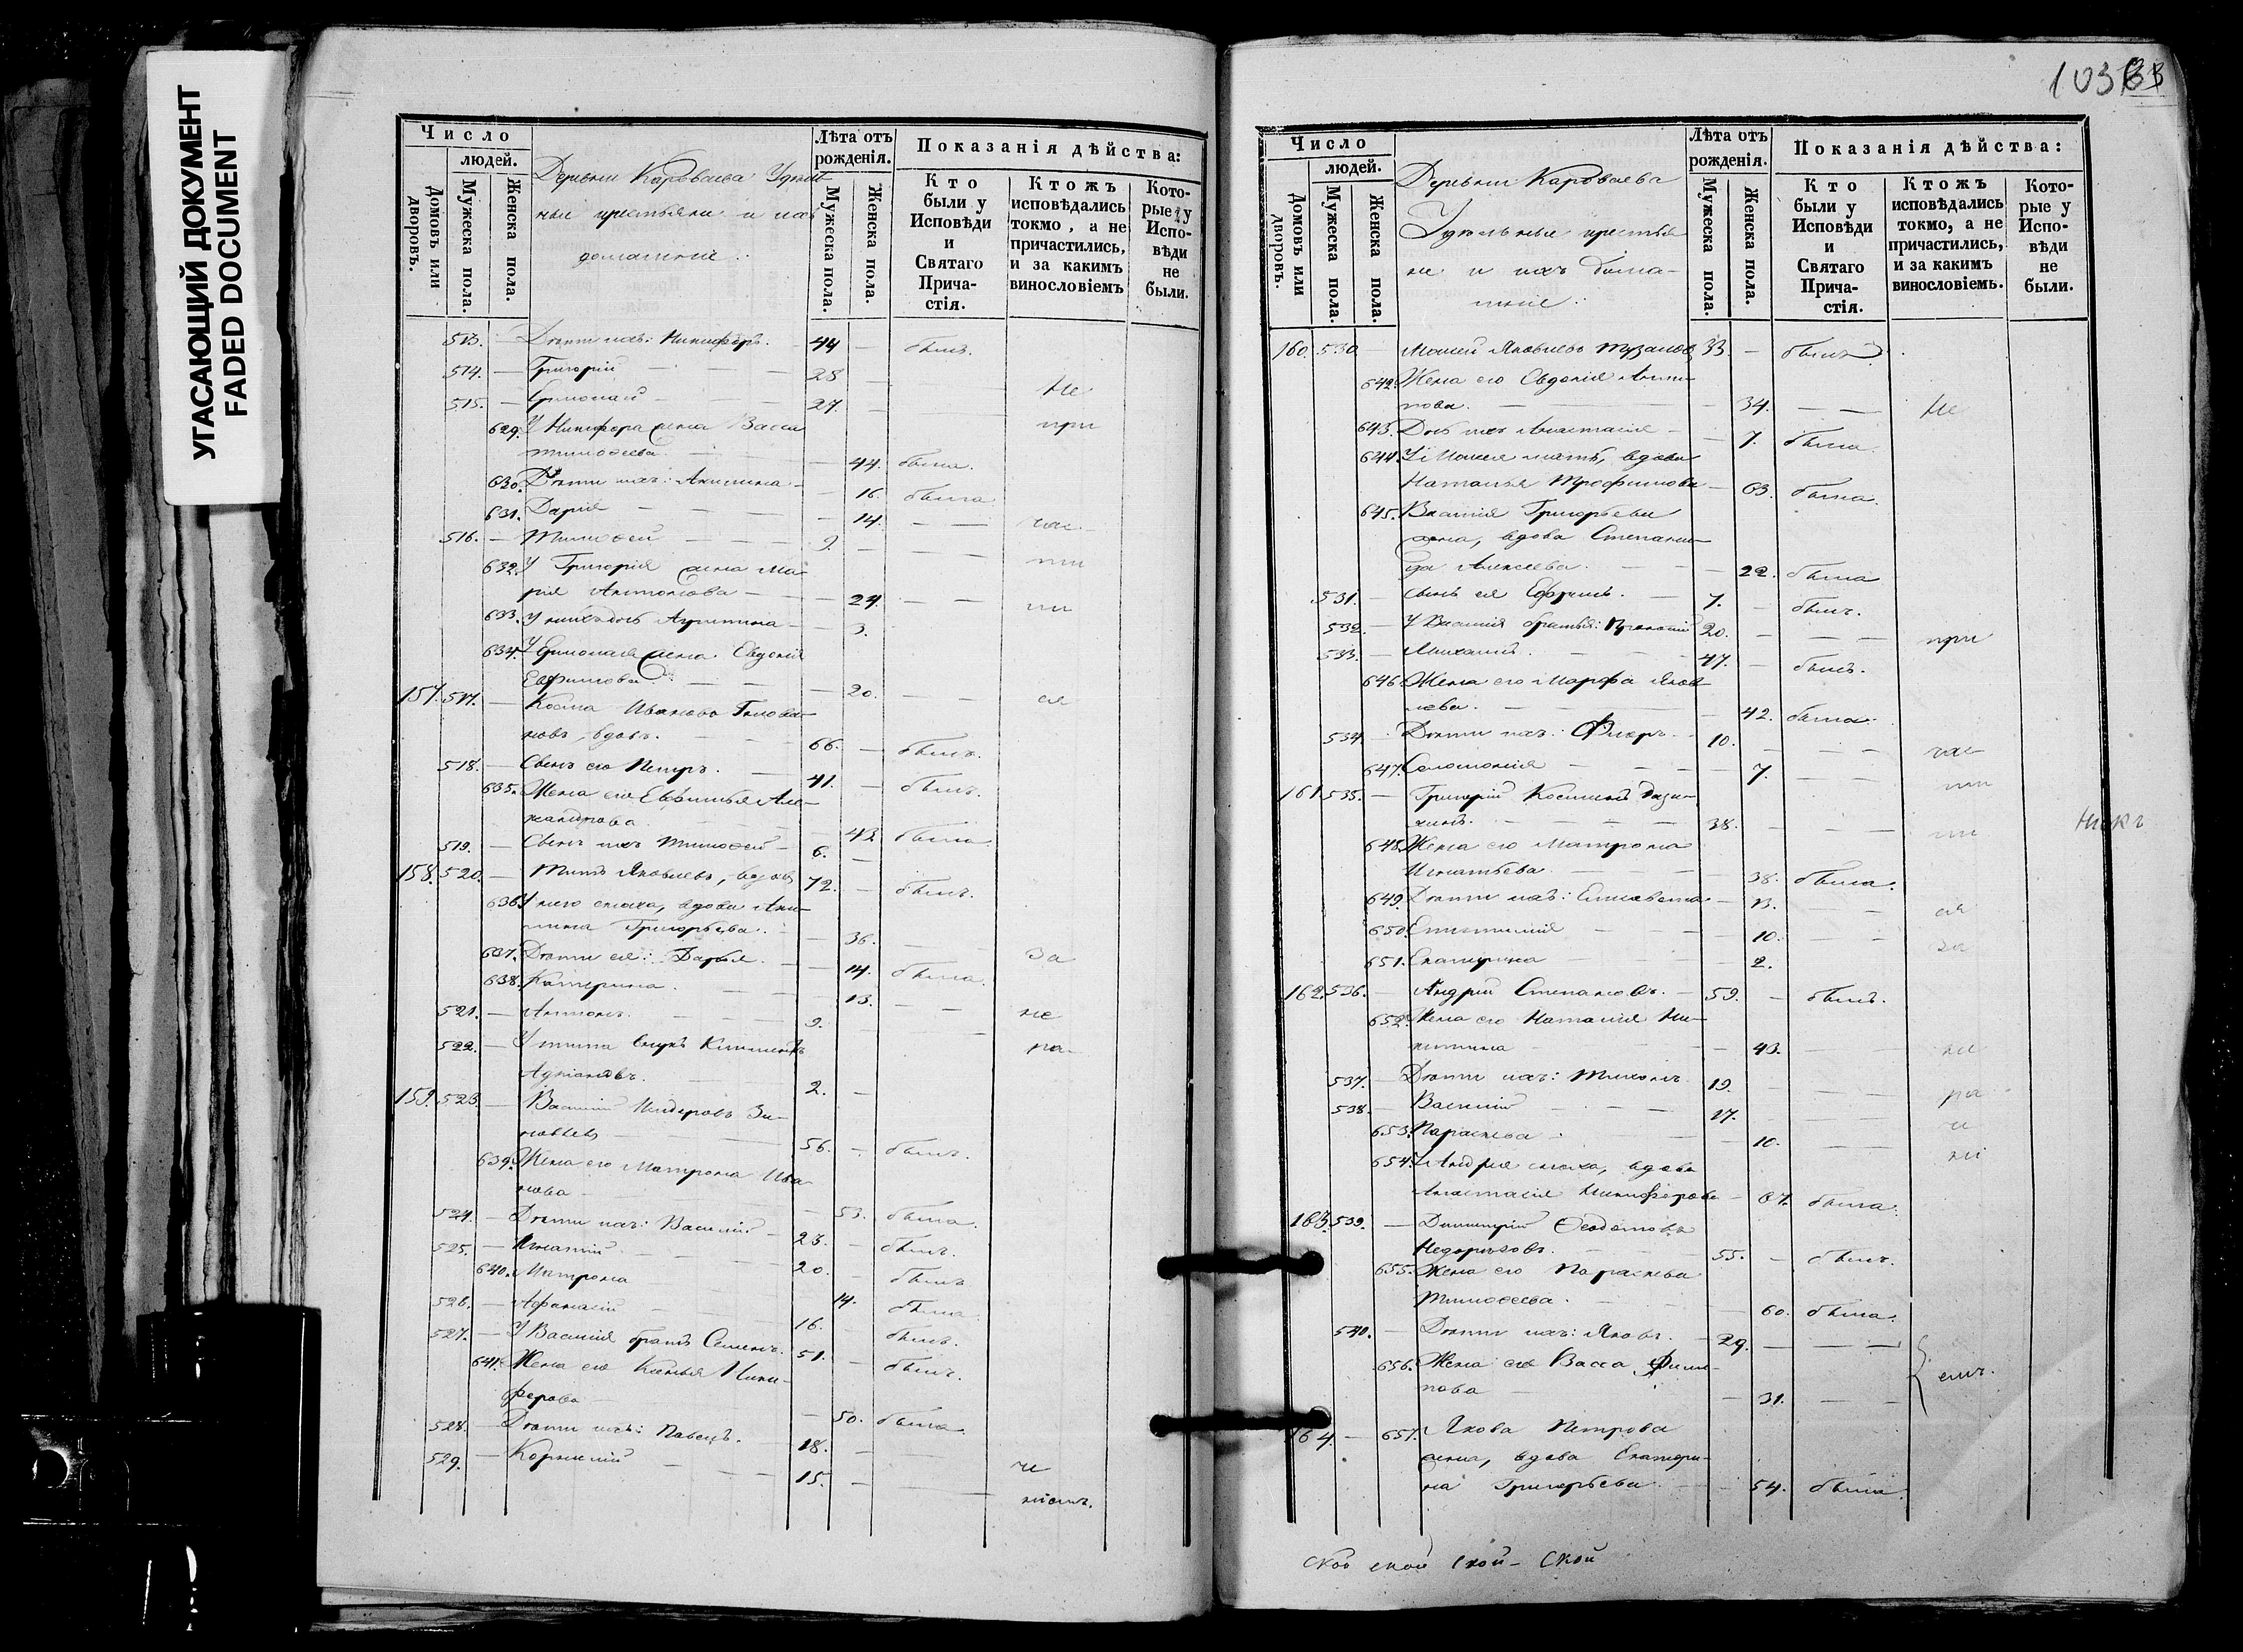 УГАСАЮЩИЙ ДОКУМЕНТ
FADED DOCUMENT
Число
людей.
Домовъ или дворовъ.
Мужеска пола.
Женска пола.
Деревни Карова­ева Удѣль
ные крестьяне и ихъ
домашніе:
Лѣта отъ рожденія.
Мужеска пола.
Женска пола.
Показанія дѣйства:
Кто были у Исповѣди и Святаго Прича-стія.
Ктожъ исповѣдались токмо, а не причастились, и за какимъ винословіемъ
Кото-рые у Испо-вѣди не были.
513. — Дѣти ихъ: Никифоръ. 44 — былъ.
514. — Григорій 28 —
515. — Ермолай 27. — не
629. У Никифора жена Васса при
Тимоѳеева. 44. была.
630. Дѣти ихъ: Акилина 16 была
631. Дарія 14. час
516. — Тимоѳей 9. —
632. У Григорія жена Ма- ти
рія Антонова 24. ли
633. У нихъ дочь 3.
634. У Ермолая жена Евдокія
Ефимова 20. ся
157. 517. — Косма Ивановъ
вдовъ. 66. — былъ.
518. — Сынъ его Петръ. 41. — былъ.
635. Жена его Евфимія Але-
ксандрова 43 была
519. — Сынъ ихъ Тимоѳей 6. —
158. 520. — Титъ Яковлевъ, вдовъ 72. — былъ.
636. У него сноха, вдова Аки-
лина Григорьева. 36. за
637. Дѣти ея: Дарья. 14. была.
638. Катерина. 13. —
521. — Антонъ. 9. не
522. — У Тита внукъ Климентъ ра-
Адріановъ. 2. —
159. 523. — Василій Исидоровъ Зи-
новьевъ 56. — былъ.
639. Жена его Матрона Ива-
нова 53. была.
524. — Дѣти ихъ: Василій 23. — былъ.
525. — Игнатій 20. — былъ
640. Матрона 14. была.
526. — Афанасій 16. — былъ.
527. — У Василія братъ Семенъ. 51. — былъ.
641. Жена его Ксенья Ники-
форова 50. была.
528. — Дѣти ихъ: Павелъ. 18. — че
529. — Корнилій 15. — ніемъ.
103
Число
людей.
Домовъ или дворовъ.
Мужеска пола.
Женска пола.
Деревни Каровaева
Удѣльные крестья
не и ихъ дома-
шніе:
Лѣта отъ рожденія.
Мужеска пола.
Женска пола.
Показанія дѣйства:
Кто были у Исповѣди и Святаго Прича-стія.
Ктожъ исповѣдались токмо, а не причастились, и за какимъ винословіемъ.
Кото-рые у Испо-вѣди не были.
160. 530. — Моисей Яковлевъ 33. — былъ
642. Жена его Евдокія
34. не
643. Дочь ихъ Анастасія 7. была.
644. У Моисея мать, вдова
Наталья Трофимова 63. была.
645. Василія Григорьева
жена, вдова Степани-
да Алексеева. 22. была
531. — Сынъ ея Ефремъ. 7. — былъ.
532. — У Василія братья: Прокопій 20. — при
533. — Михаилъ. 47. — былъ.
646. Жена его Марфа Яков
лева. 42. была.
534. — Дѣти ихъ: Флоръ 10. — час
647. Соломонія 7. ти
161. 535. — Григорій Косминъ
38. — ли
648. Жена его Матрона
Игнатьева 38. была.
649. Дѣти ихъ: Елисавета 13. ся
650. Епистимія 10. за
651. Екатерина 2.
162. 536. — Андрей Степановъ. 59. — былъ.
652. Жена его Наталія Ни-
китина 43. не
537. — Дѣти ихъ: Тихонъ 19. — ра
538. — Василій 17.
653. Параскева 10. ні
654. У Андрея сноха, вдова
Анастасія Никифорова была.
163. 539. — Димитрій Ѳедотовъ
55. — былъ.
655. Жена его Параскева
Тимоѳеева. 60. была.
540. — Дѣти ихъ: Яковъ. 29.
656. Жена его Васса Филип-
пова 31. емъ.
164. — 657. Якова Петрова
жена, вдова Екатери-
на Григорьева. 54. была.
ской ской